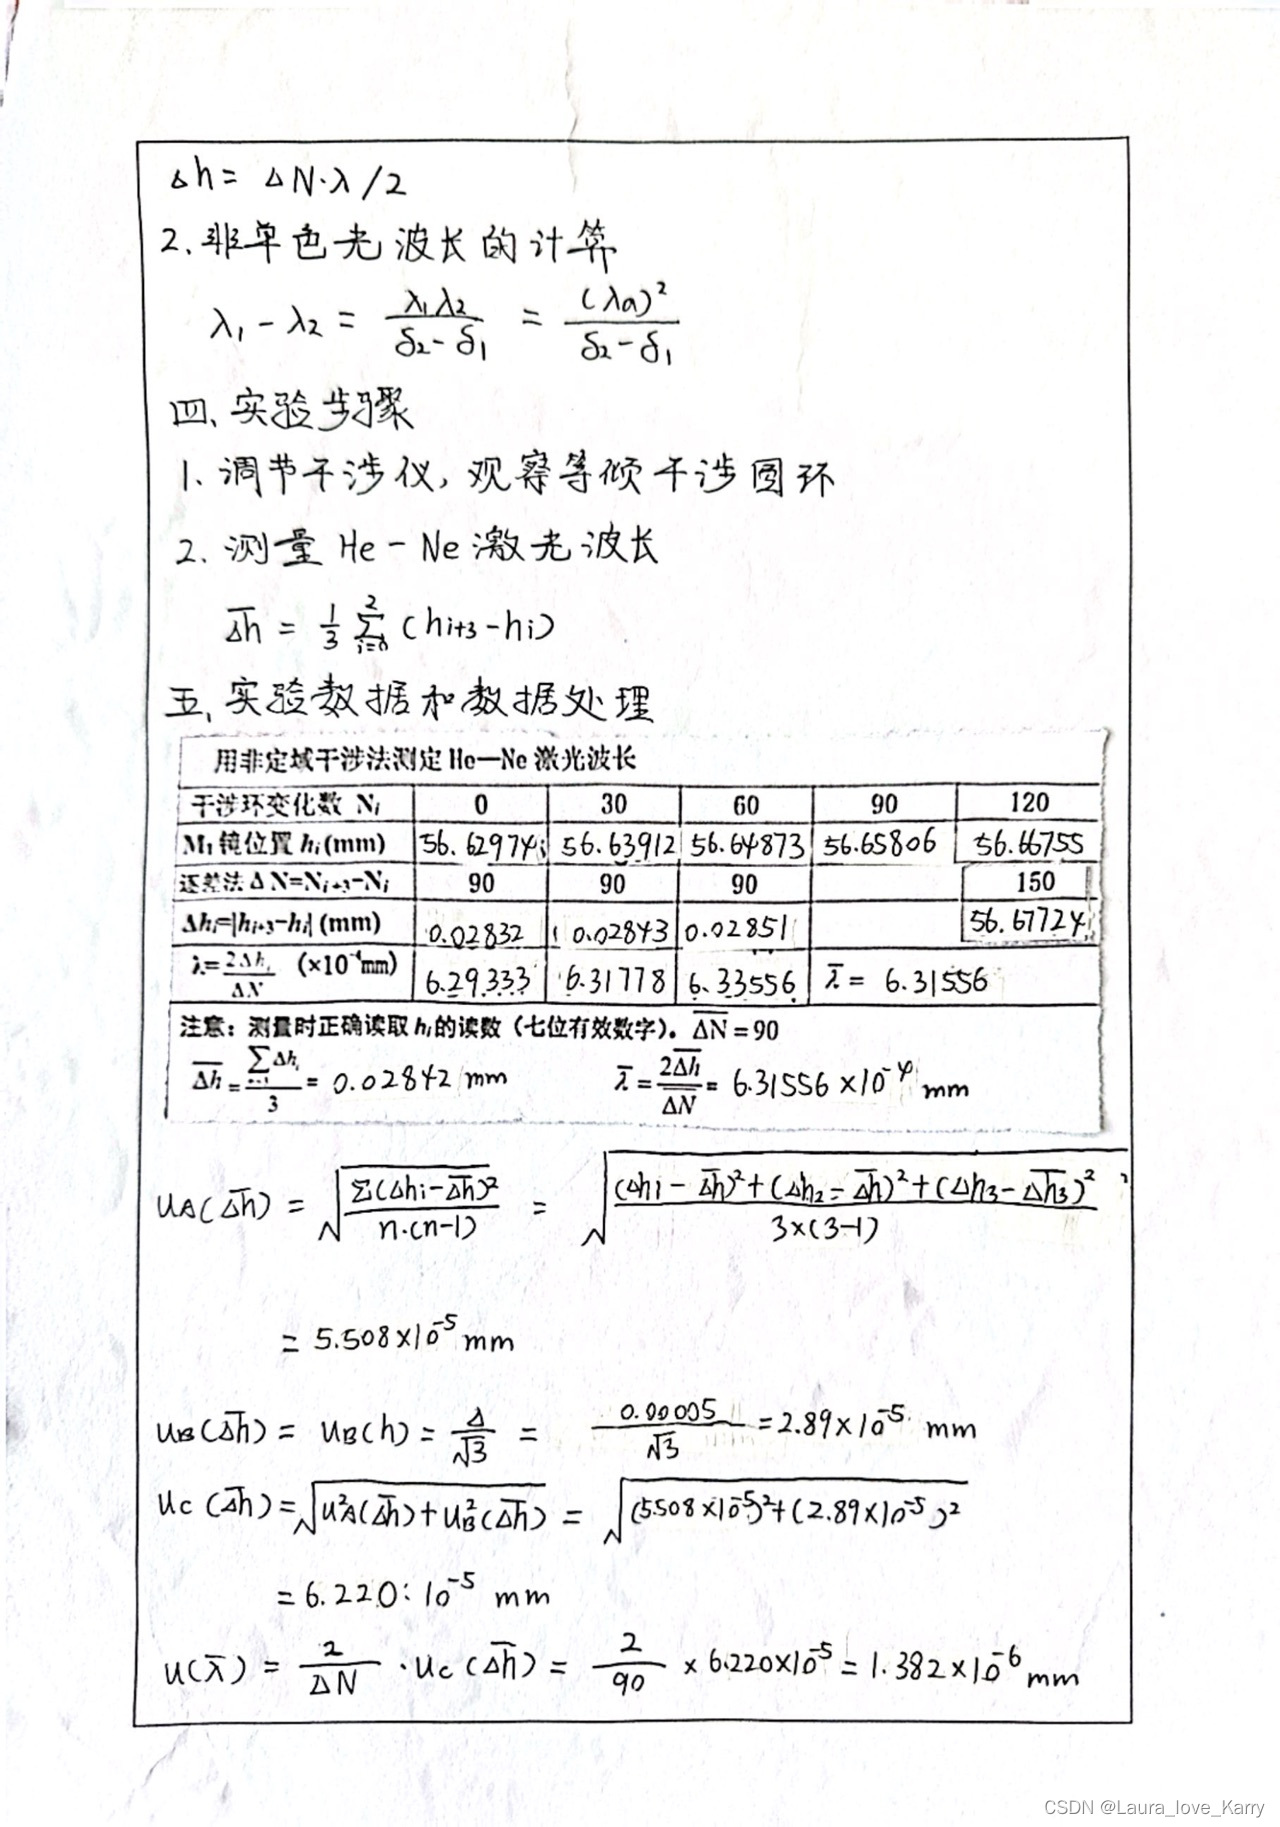 Δh = ΔN·λ/2
2.非单色光波长的计算
λ₁ - λ₂ = λ₁λ₂/(δ₂-δ₁) = (λa)²/(δ₂-δ₁)
四、实验步骤
1、调节干涉仪,观察等倾干涉圆环
2.测量He-Ne激光波长
Δh̅ = 1/3 Σ(i=0→2) (hi+3 - hi)
五、实验数据和数据处理
用非定域干涉法测定He—Ne激光波长
干涉环变化数 Nᵢ 0 30 60 90 120
M₁镜位置 hᵢ(mm) 56.62974 56.63912 56.64873 56.65806 56.66755
逐差法ΔN=Nᵢ₊₃-Nᵢ 90 90 90 150
Δhᵢ=|hᵢ₊₃-hᵢ|(mm) 0.02832 0.02843 0.02851 56.67724
λ=2Δhᵢ/ΔN (×10⁻⁴mm) 6.29333 6.31778 6.33556 λ̅ = 6.31556
注意：测量时正确读取hᵢ的读数（七位有效数字）。Δ̅N̅=90
Δh̅=ΣΔhᵢ/3= 0.02842 mm λ̅=2Δh̅/ΔN̅= 6.31556×10⁻⁴ mm
uA(Δh̅) = √(Σ(Δhi-Δh̅)²/n·(n-1)) = √((Δhi-Δh̅)²+(Δh₂-Δh̅)²+(Δh₃-Δh̅₃)²/3×(3-1))
= 5.508×10⁻⁵mm
uB(Δh̅) = uB(h) = Δ/√3 = 0.00005/√3 = 2.89×10⁻⁵ mm
uc(Δh̅)=√(u²A(Δh̅)+u²B(Δh̅)) = √((5.508×10⁻⁵)²+(2.89×10⁻⁵)²)
=6.220:10⁻⁵ mm
u(λ̅) = 2/ΔN ·uc(Δh̅) = 2/90 ×6.220×10⁻⁵=1.382×10⁻⁶mm
CSDN @Laura_love_Karry